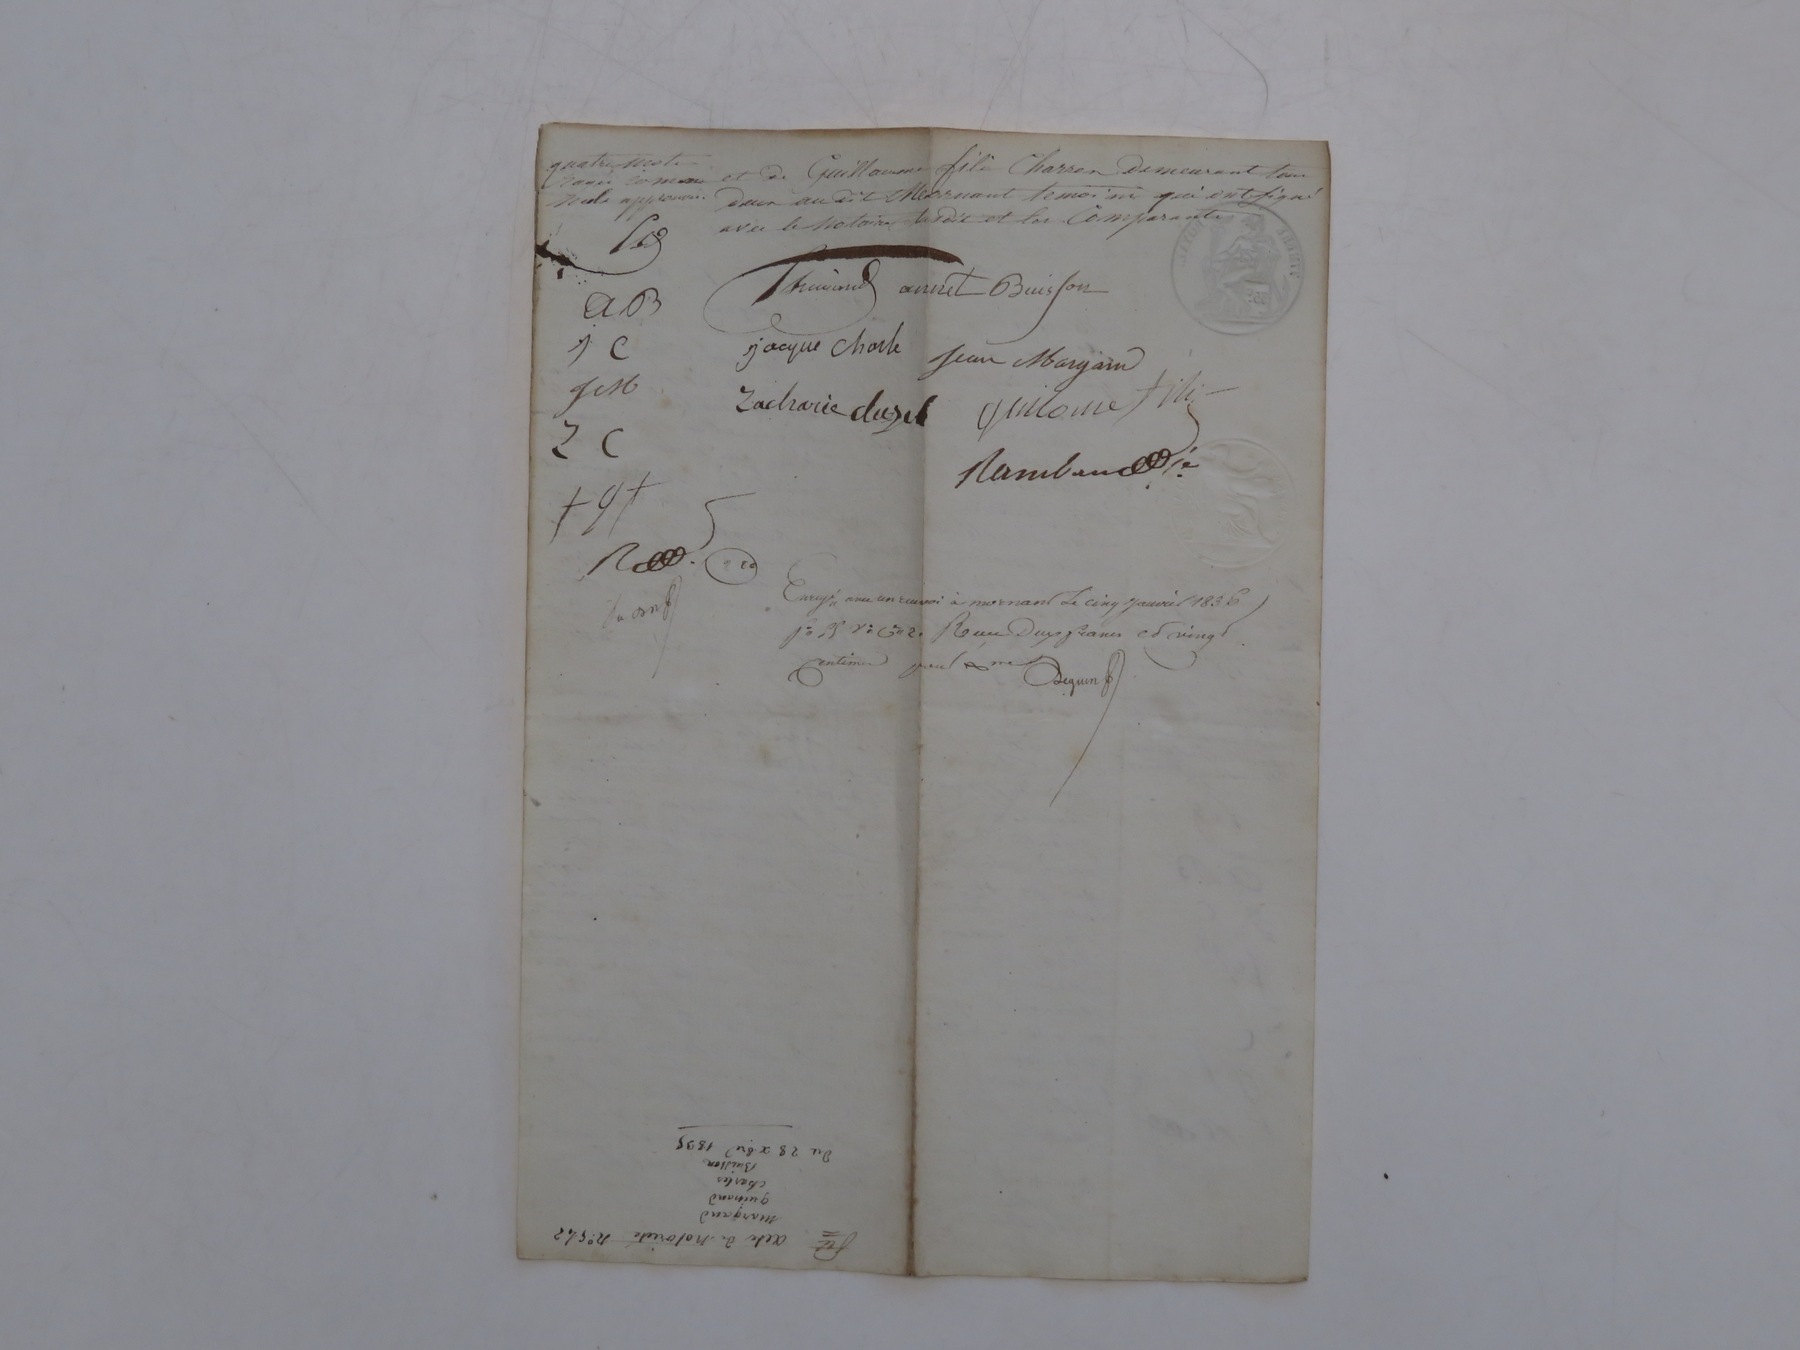 quatre mots
rayés comme
nuls approuvés.
et de Guillaume fili Charron demeurant tous
deux au dit Mornant témoins qui ont signé
avec le Notaire susdit et les Comparants
annet Buisson
AB
J C
jacque Charle
Jean Margand
JM
Zacharie
guilome fili
Z C
Rambaud
+ g +
Enreg. avec un renvoi à mornant Le cinq Janvier 1836
Reçu Deux francs et vingt
centimes
Seguin
Du 28 xbre 1835
Buisson
Charles
guinand
margand
acte de Notoriété N° 542